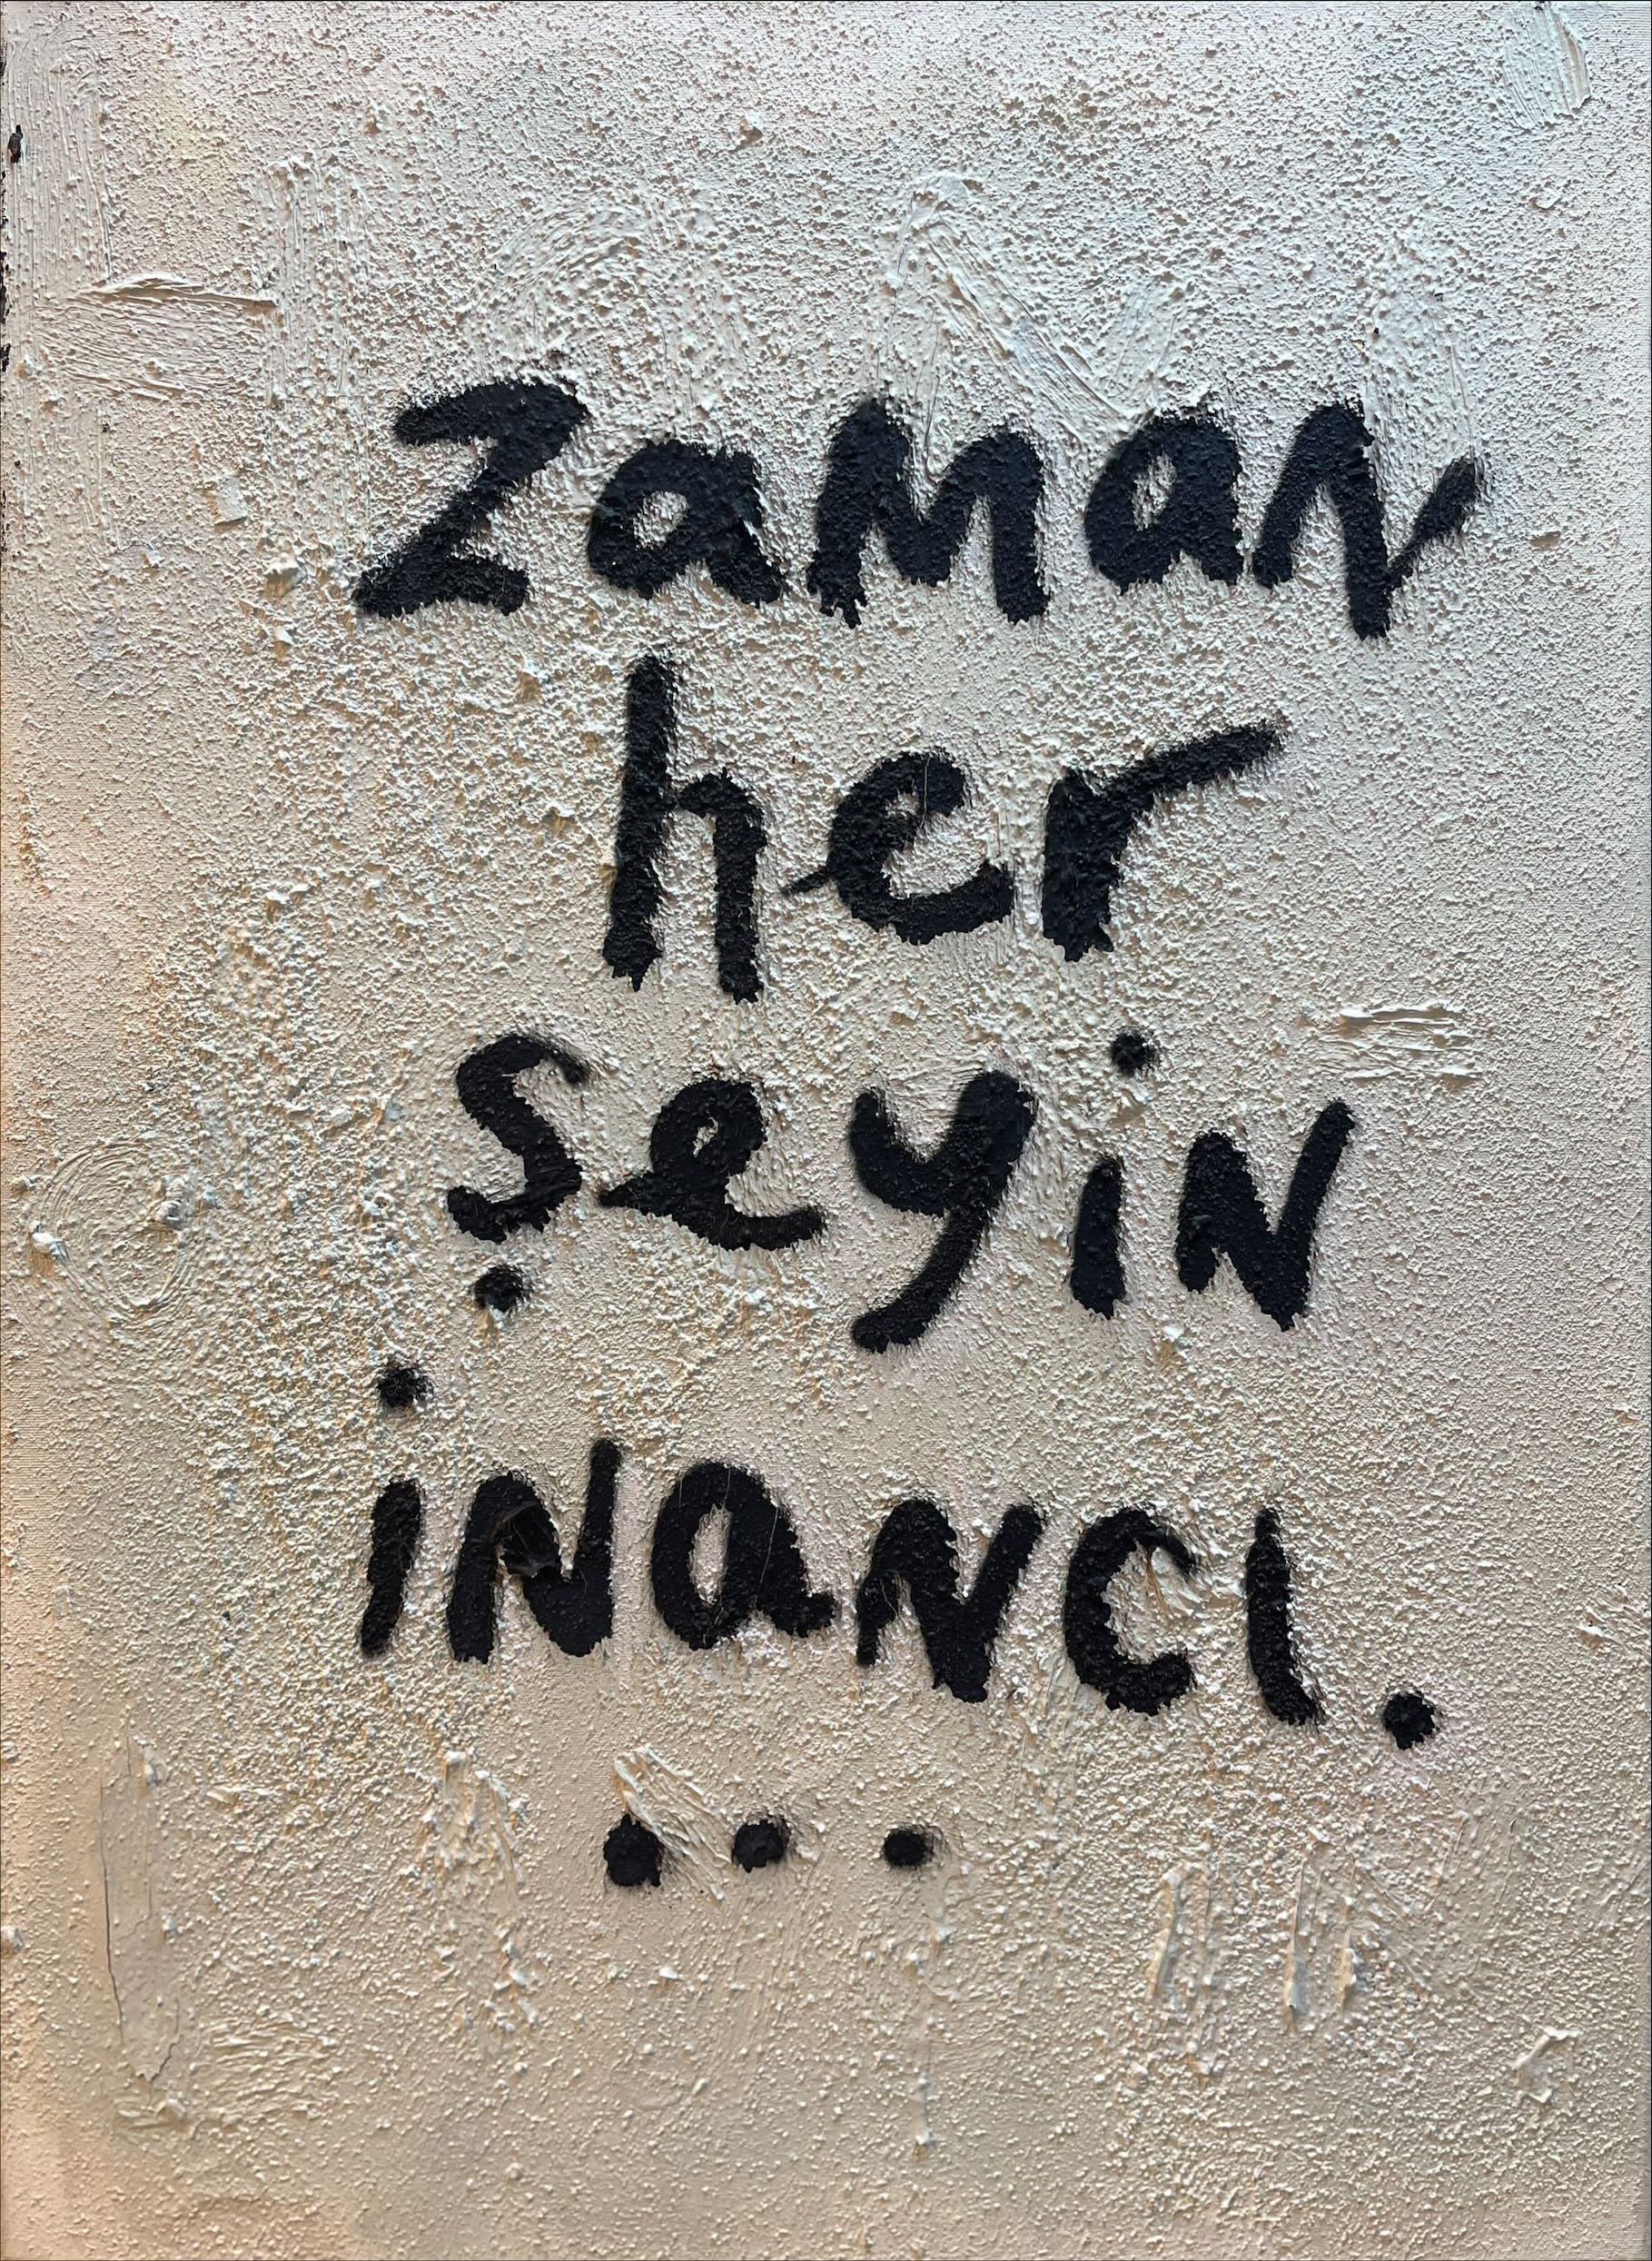 Zaman
her
şeyin
inancı.
...